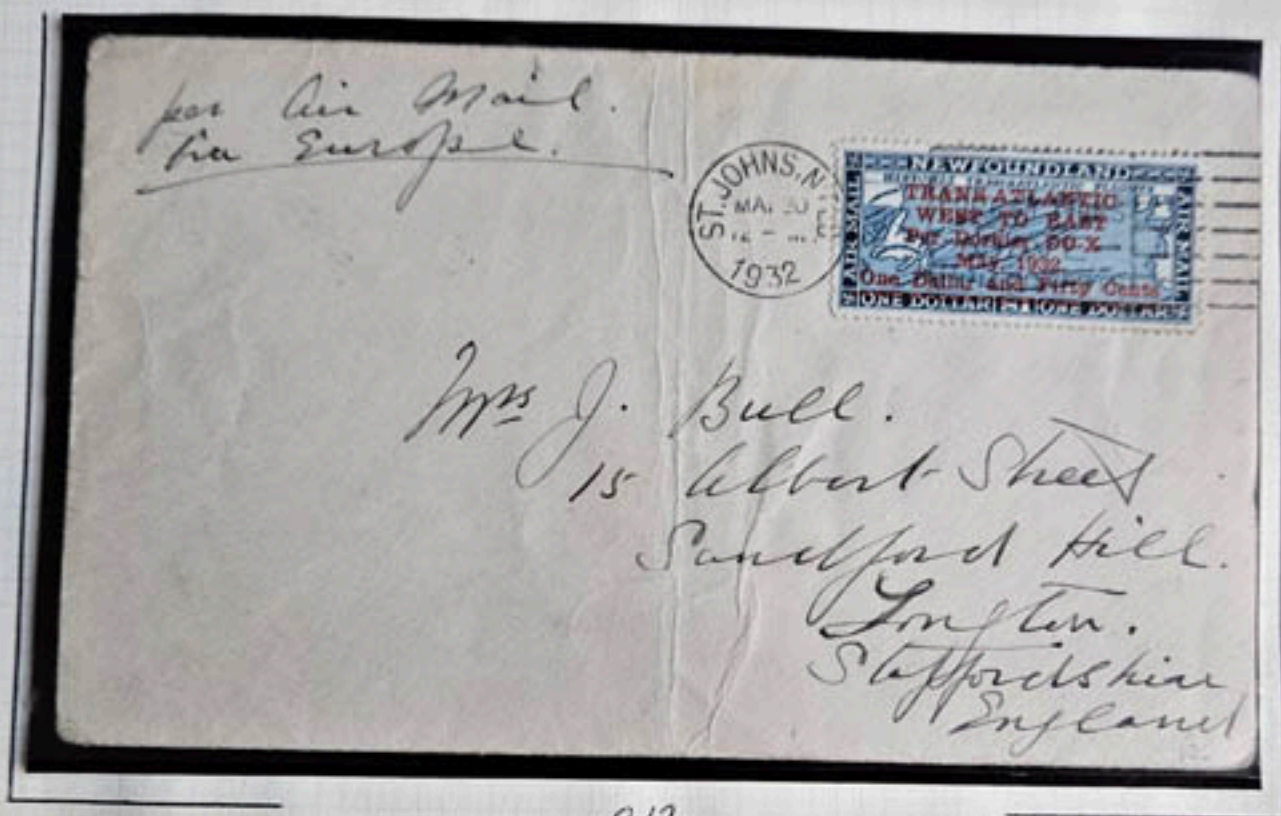 per Air Mail.
via Europe.
ST. JOHNS, N
1932
NEWFOUNDLAND
AIR MAIL
AIR MAIL
TRANS-ATLANTIC
WEST TO EAST
Per Dornier DO-X
May, 1932.
One Dollar and Fifty Cents
ONE DOLLAR $1 ONE DOLLAR
Mrs J. Bull.
15 Albert Street
Sandford Hill.
Longton.
Staffordshire
England